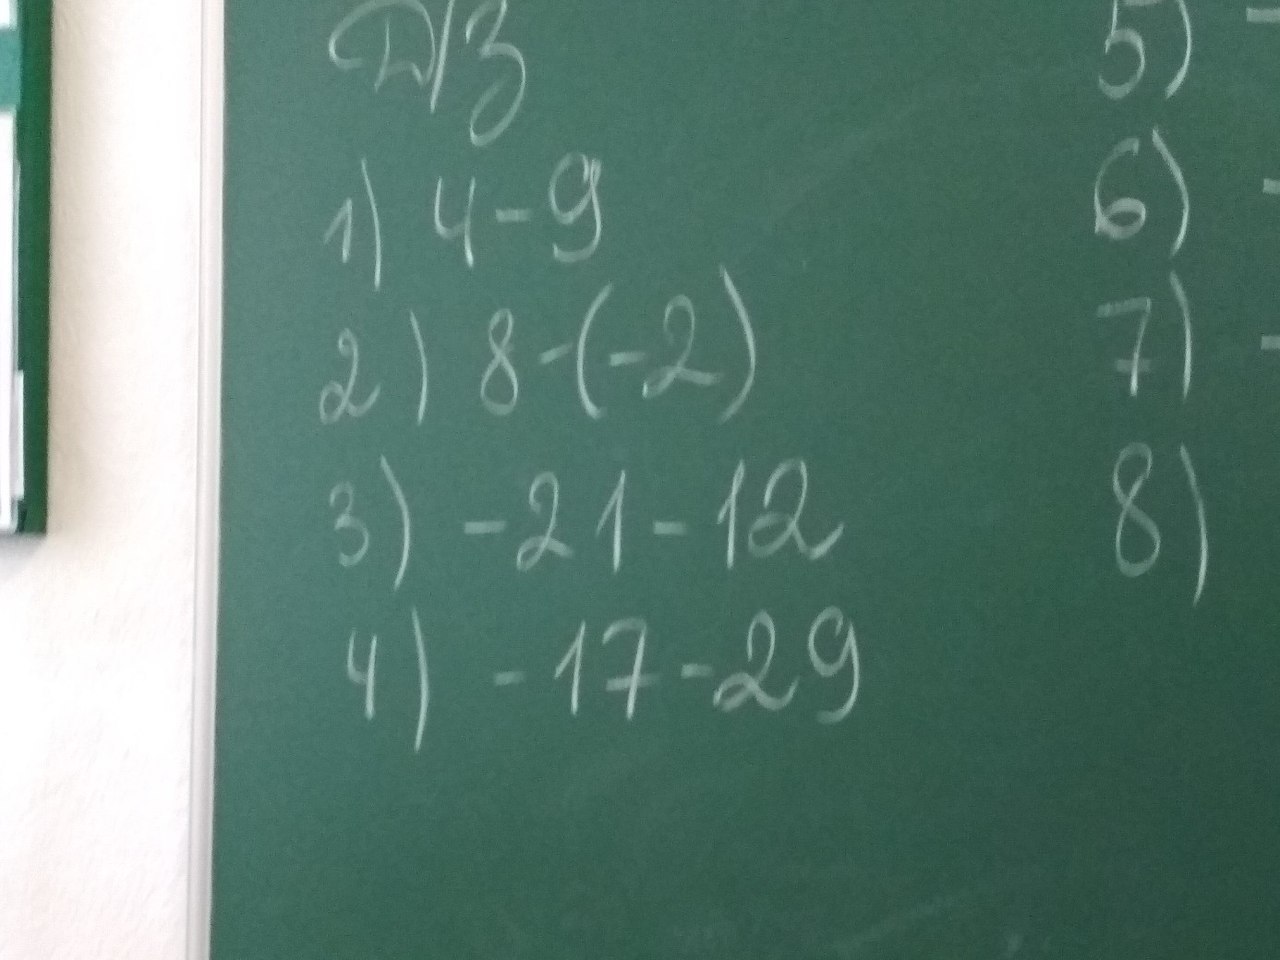 Д/З
1) 4-9
2) 8-(-2)
3) -21-12
4) -17-29
5) -
6) -
7) -
8)